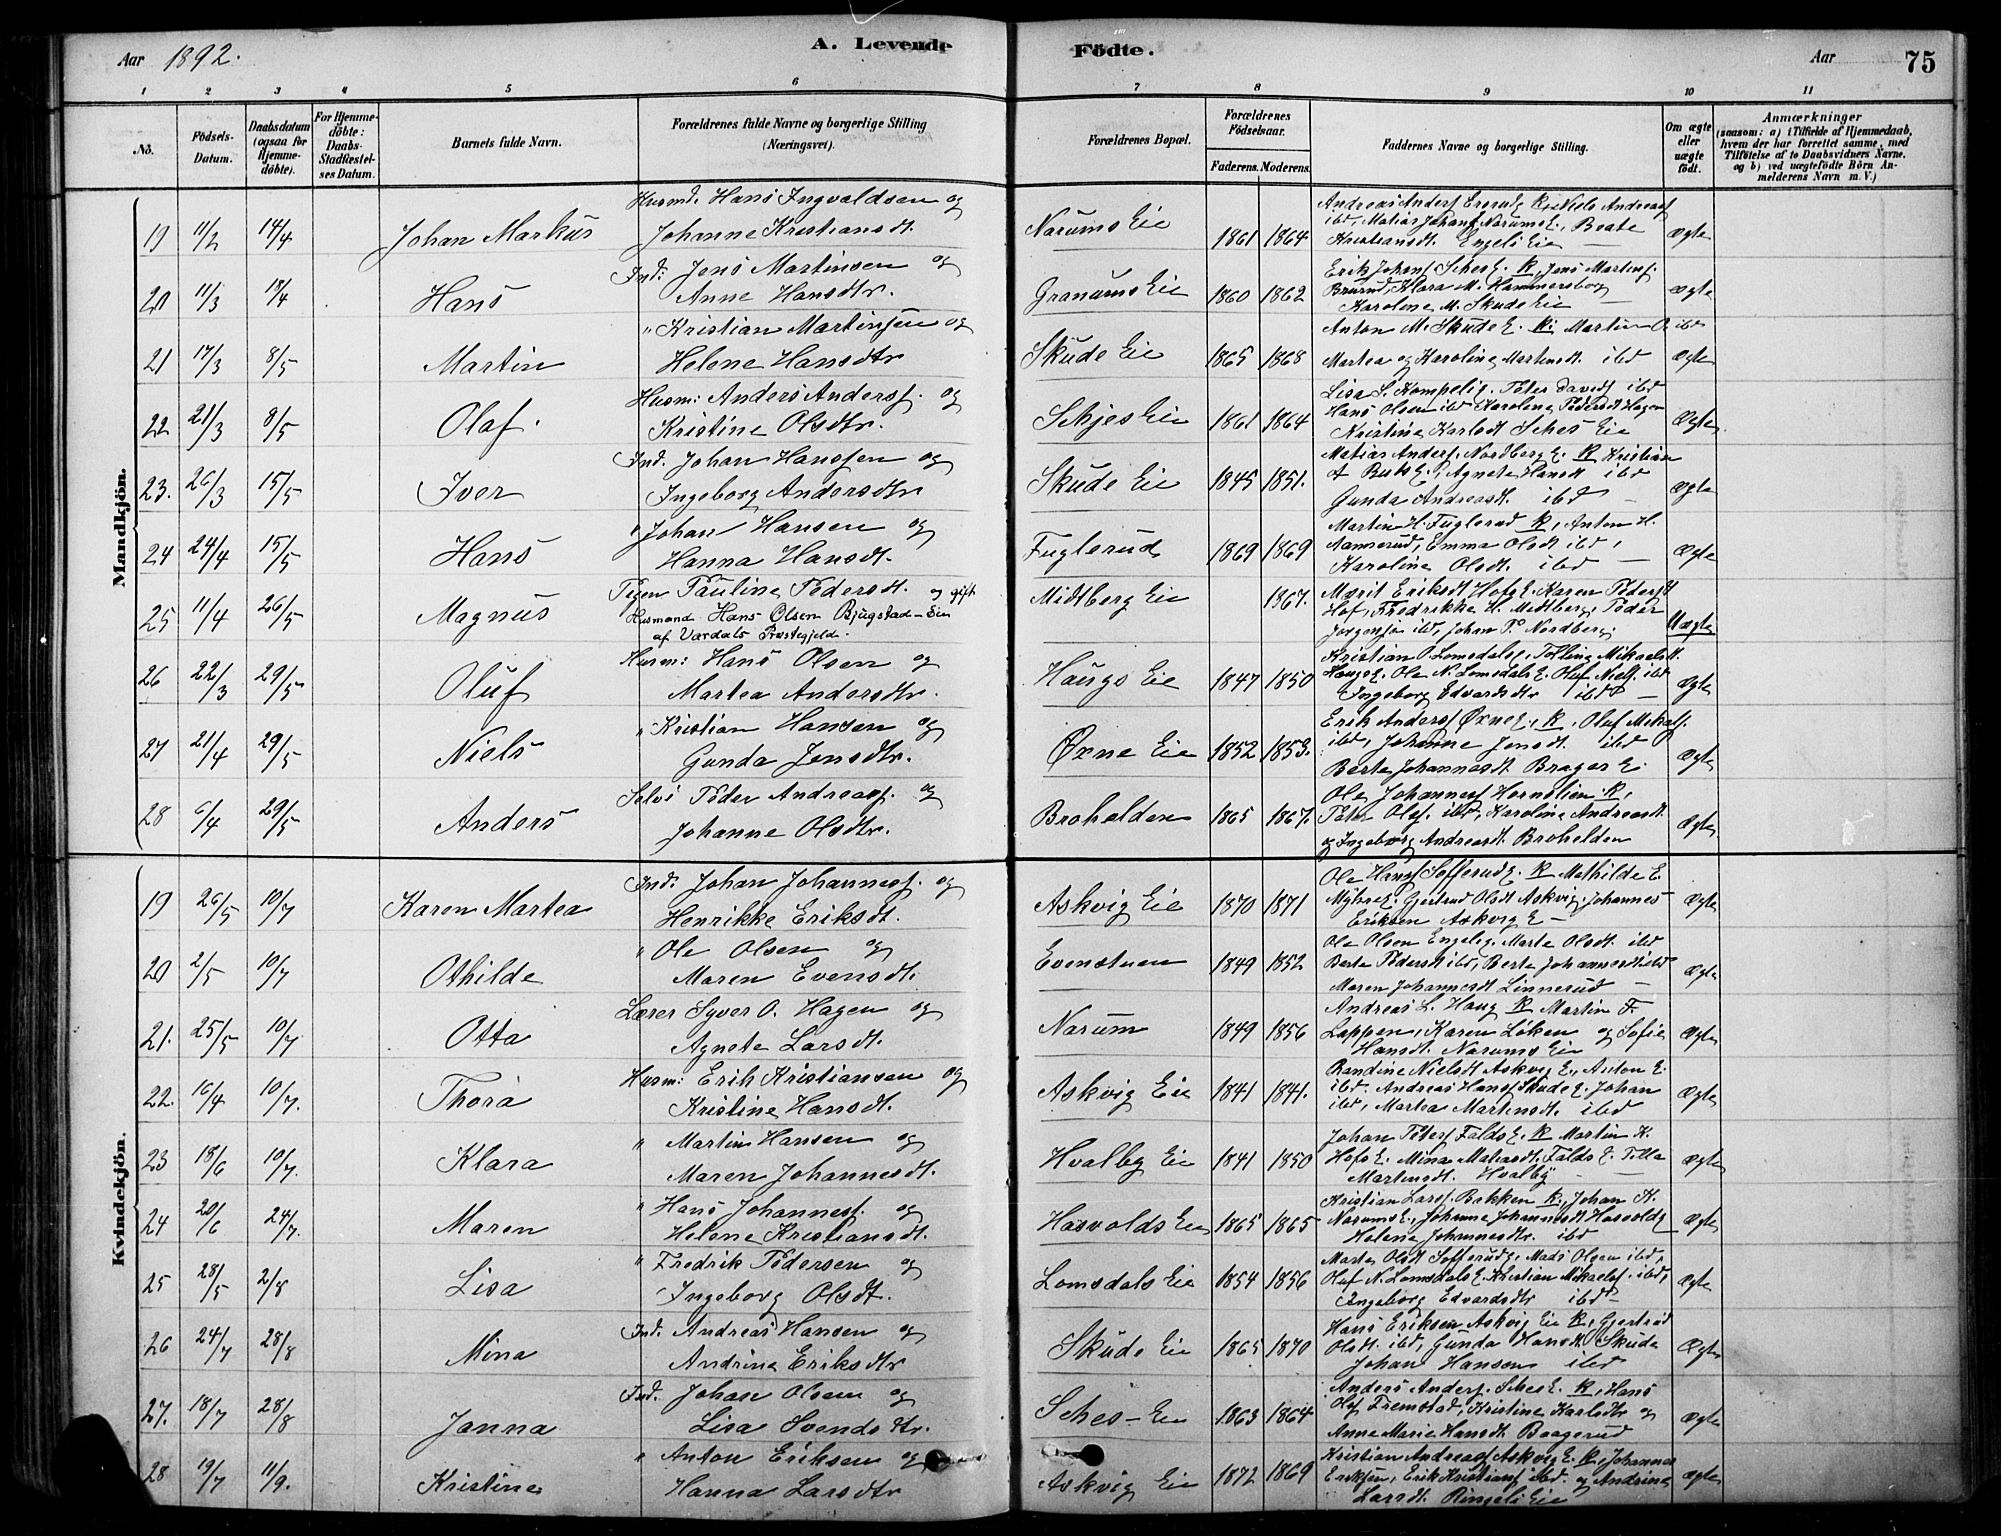 Aar 1892. A. Levende Födte. Aar 75
1 2 3 4 5 6 7 8 9 10 11
No. Födsels-Datum. Daabsdatum (ogsaa for Hjemmedöbte). For Hjemmedöbte: Daabs-Stadfæstelses Datum. Barnets fulde Navn. Forældrenes fulde Navne og borgerlige Stilling (Næringsvei). Forældrenes Bopæl. Forældrenes Fødselsaar. Faderens. Moderens. Faddernes Navne og borgerlige Stilling. Om ægte eller uægte födt. Anmærkninger (saasom: a) i Tilfælde af Hjemmedaab, hvem der har forrettet samme, med Tilföielse af to Daabsvidners Navne, og b) ved uægtefödte Börn Anmelderens Navn m. V.)
Mandkjön.
19 11/2 14/4 Johan Markus Husmd. Hans Ingvaldsen og Johanne Kristiansdt. Narums Eie 1861 1864 Beate Kristiansdt. Engelis Eie Ægte
20 11/3 18/4 Hans Ind: Jens Martinsen og Anne Hansdtr. Granums Eie 1860 1862 Karoline M. Skude Eie Ægte
21 17/3 8/5 Martin " Kristian Martinsen og Helene Hansdtr Skude Eie 1865 1868 Anton M. Skude E. K. Martin O. ibd Martea og Karoline Martinsdt. ibd Ægte
22 21/3 8/5 Olaf. Husm: Anders Andersf. og Kristine Olsdtr. Schjes Eie 1861 1864 Hans Olsen ibd Karoline Pedersdt Hagen Kristine Karlsdt Sches Eie Ægte
23. 26/3 15/5 Iver Ind. Johan Hansen og Ingeborg Andersdtr Skude Eie 1845 1851. Matias Andersf. Nordberg E. K Kristian Agnete Hansdt ibd Gunda Andreasdt. ibd Ægte
24 24/4 15/5 Hans " Johan Hansen og Hanna Hansdt. Fuglerud 1869 1869 Martin H. Fuglerud K, Anton H. Aamerud, Emma Olsdt ibd, Karoline Olsdt. ibd Ægte
25 11/4 26/5 Magnus Pigen Pauline Pedersdt. og gift Husmand Hans Olsen Bjugstad-Eie af Vardals Præstegjeld. Midtberg Eie 1867. Marit Eriksdt Hofs E. Karen Pedersdt Hof, Fredrikke H. Midtberg, Peder Jörgensen ibd, Johan P. Nordberg. Uægte
26 22/3 29/5 Oluf Husm: Hans Olsen og Martea Andersdtr. Haugs Eie 1847 1850 Ole N. Lomsdals E. Oluf Nielsf. ibd Ingeborg Edvardsdtr ibd Ægte
27 21/4 29/5 Niels " Kristian Hansen og Gunda Jensdtr. Ørne Eie 1852 1853. Erik Andersf Ørne E. K. Oluf ibd, Johanne Jensdt ibd Berte Johannesdt Brager E. Ægte
28 6/4 29/5 Anders Selvs Peder Andreasf. og Johanne Olsdtr. Broholden 1865 1867. Ole Johannesf Hornslien K, Peter Olsf. ibd, Karoline Andreasdt. og Ingeborg Andreasdt Broholden Ægte
Kvindekjön.
19 26/5 10/7 Karen Martea Ind. Johan Johannesf. og Henrikke Eriksdt. Askvig Eie 1870 1871 Ole Hansf Sofferud E. K Mathilde E. Gjertrud Olsdt Askvig, Johannes Eriksen Askvig E Ægte
20 2/5 10/7 Othilde " Ole Olsen og Maren Evensdt. Evenstuen 1849 1852 Ole Olsen Marte Olsdt. ibd Berte Pedersdt ibd, Berte Johannesdt ibd Maren Johannesdt Linnerud Ægte
21. 25/5 10/7 Otta Lærer Syver O. Hagen og Agnete Larsdt. Narum 1849 1856 Andreas L. Haug K Martin F. Lappen, Karen Løken og Sofie Hansdt. Narums Eie Ægte
22. 16/4 10/7. Thora Husm: Erik Kristiansen og Kristine Hansdt. Askvig Eie 1841 1841. Randine Nielsdt Askvig E., Anton E. ibd. Andreas Hansf Skude E. Johan ibd, Martea Martinsdt. ibd Ægte
23 18/6 10/7 Klara " Martin Hansen og Maren Johannesdt. Hvalby Eie 1841 1850 Johan Petersf Falds E. K Martin K. Hofs E. Mina Falds E. Martinsdt. Hvalby Ægte
24 20/6 24/7. Maren " Hans Johannesf. og Helene Kristiansdt. Hasvolds Eie 1865 1865 Kristian Larsf. Bakken K, Johan K. Narums E., Johanne Johannesdt Helene Johannesdtr. ibd Ægte
25 28/5 2/8 Lisa " Fredrik Pedersen og Ingeborg Olsdt. Lomsdals Eie 1854 1856 Marte Olsdt Sofferud E, Mads Olsen ibd, Oluf N. Lomsdals E. Kristian Mikaelsf. ibd, Ingeborg Edvardsdtr ibd Ægte
26 24/7 28/8 Mina Ind. Andreas Hansen og Andrine Eriksdtr Skude Eie 1865 1870 Hans Eriksen Askvig Eie K, Gjertrud Olsdt. ibd, Gunda Hansdt. Skude Johan Hansen ibd Ægte
27. 18/7 28/8 Janna Ind. Johan Olsen og Lisa Svendsdtr. Sches-Eie 1863 1864 Anders Andersf. Sches E. K, Hans Olsf Fremstad, Kristine Karlsdtr og Anne Marie Hansdt Baagerud Ægte
28 19/7 11/9. Kristine " Anton Eriksen og Hanna Larsdtr Askvig Eie 1872 1869 Kristian Andreasf Askvig E. K, Johannes Eriksen, Erik Kristiansf ibd. og Andrine Larsdt. Ringelis Eie Ægte